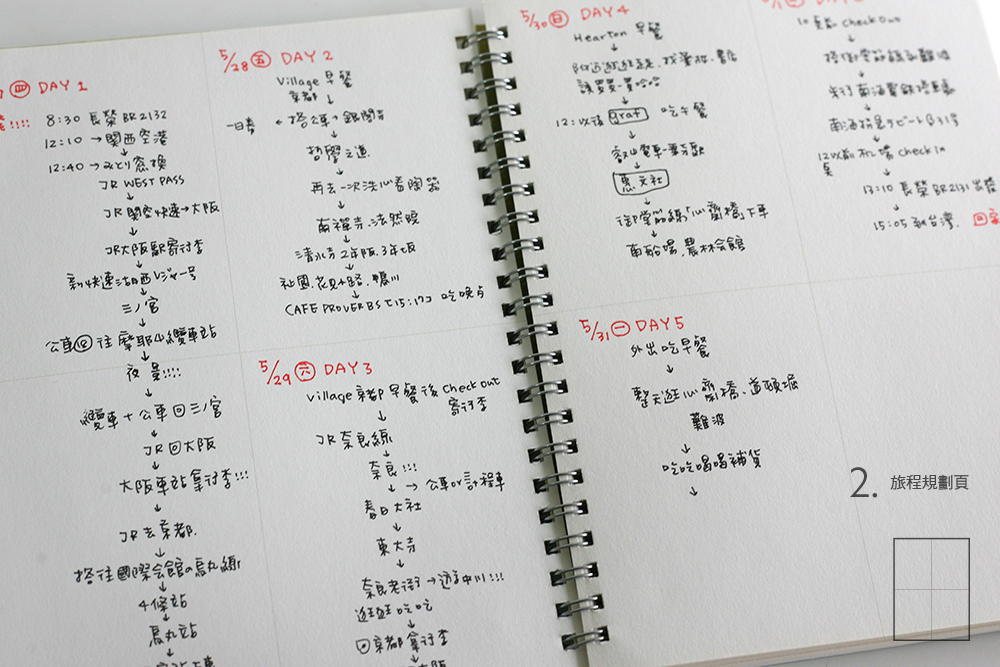 ㊃ DAY 1
8:30 長榮 BR2132
12:10 → 関西空港
12:40 → みどり窓換
JR WEST PASS
↓
JR 関空快速 → 大阪
↓
JR大阪駅寄行李
↓
新快速
↓
三ノ宮
↓
公車 往 摩耶山纜車站
↓
夜景!!!!
↓
纜車 + 公車 回 三ノ宮
↓
JR 回 大阪
↓
大阪車站 拿行李!!!
↓
JR 去 京都.
↓
搭往國際会館の烏丸線
↓
4條站
↓
烏丸站
↓
5/28 ㊄ DAY 2
Village 早餐
京都 ↓
一日券 ← 搭公車 → 銀閣寺
↓
哲學之道
↓
再去一次洗心看陶器
↓
南禪寺.法然院
↓
清水寺 2年阪.3年坂
↓
祉園.花見小路.鴨川
↓
CAFE PROVERBS 吃晚点
5/29 ㊅ DAY 3
Village 京都 早餐後 Check out
寄行李
↓
JR 奈良線
↓
奈良!!!
↓ → 公車 or 計程車
春日大社
↓
東大寺
↓
奈良老街 → 遊中川!!!
逛逛吃吃
↓
回京都 拿行李
↓
大阪
5/30 ㊐ DAY 4
Hearton 早餐
↓
↓
12:以後 graf 吃午餐
↓
叡山電車
↓
惠文社
↓
御堂筋線「心齋橋」下車
↓
南船場.農林会館
5/31 ㊀ DAY 5
外出吃早餐
↓
整天逛心齋橋、道頓堀
難波
↓
吃吃喝喝補貨
↓
Check out
↓
搭御堂筋線到難波
↓
↓
↓
12 以前 机場 check in
↓
13:10 長榮 BR2131 出發
↓
15:05 到台湾.
2. 旅程規劃頁